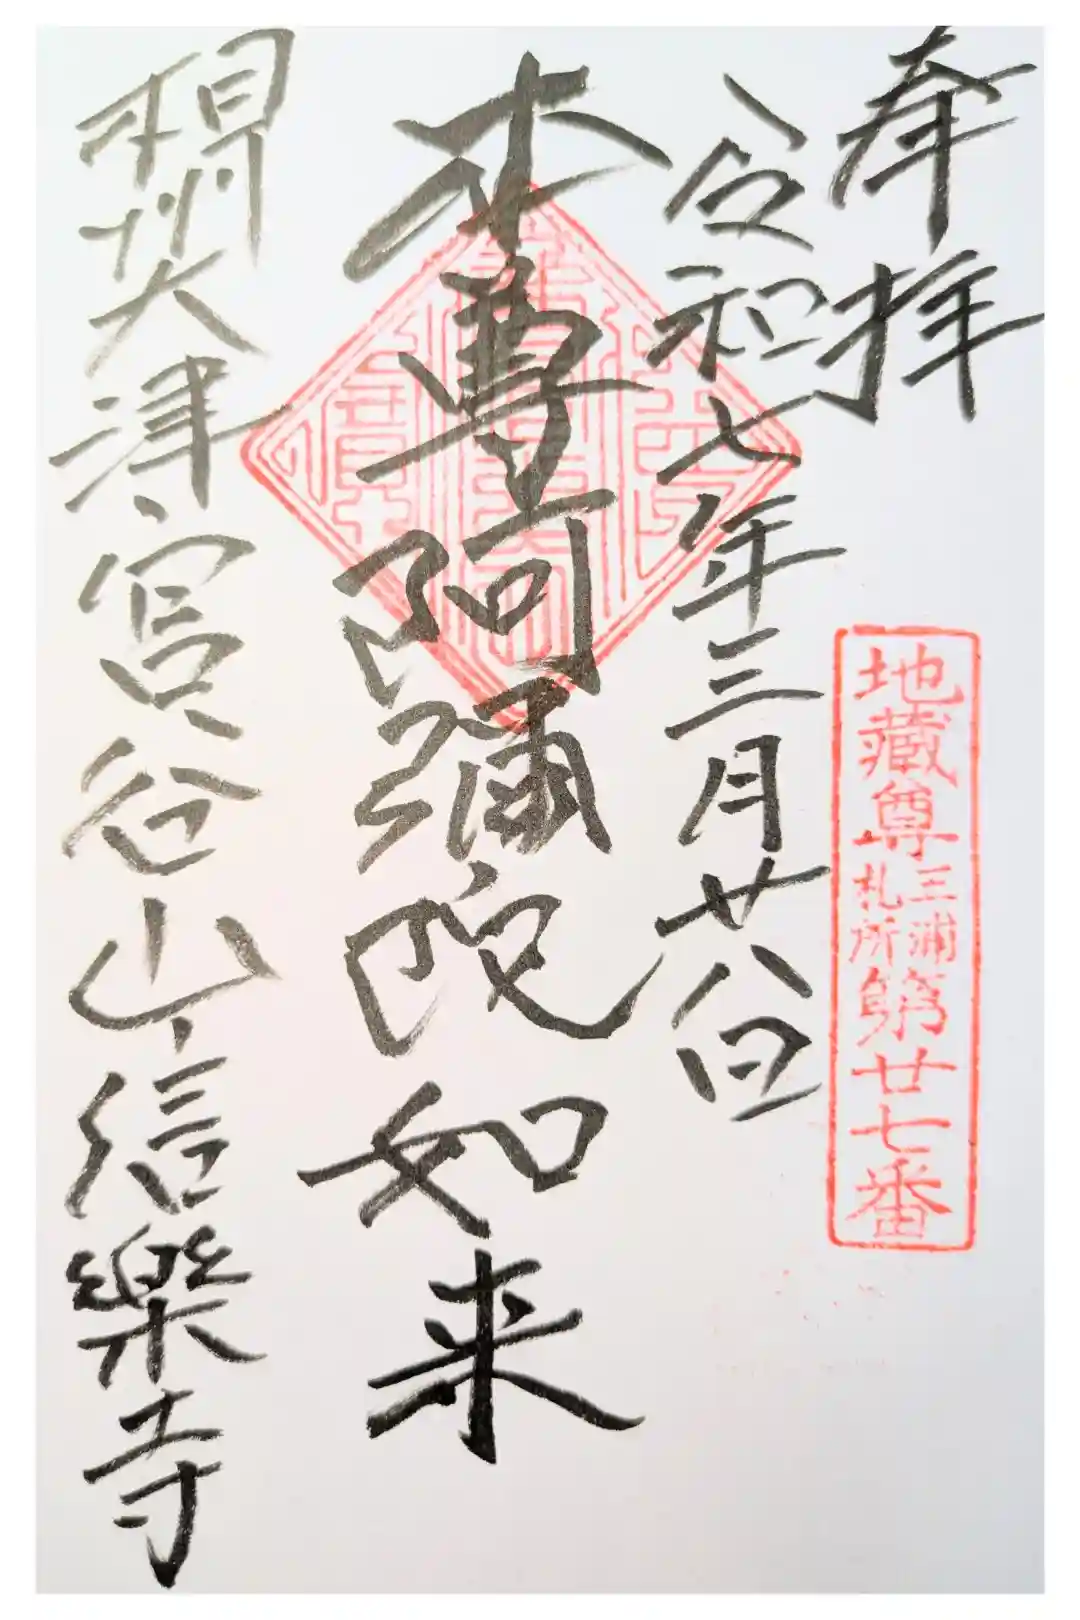 奉拝
令和七年三月廿八日
地蔵尊三浦札所第廿七番
本尊阿彌陀如来
相州大津宮谷山信樂寺